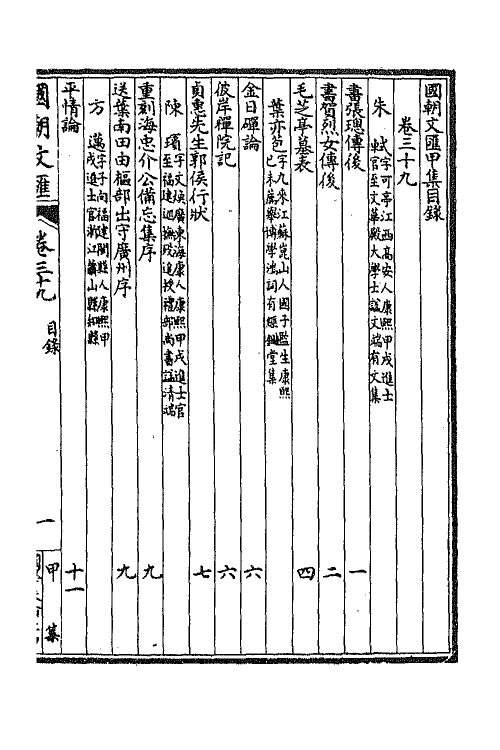 國朝文匯甲集目錄
卷三十九
朱軾 字可亭江西高安人康熙甲戌進士官至文華殿大學士諡文端有文集
書張璁傳後 一
書賀烈女傳後 二
毛芝亭墓表 四
葉亦苞 字九來江蘇崑山人國子監生康熙己未薦舉博學鴻詞有經鉏堂集
金日磾論 六
彼岸禪院記 六
貞惠先生郭侯行狀 七
陳璸 字文煥廣東海康人康熙甲戌進士官至福建巡撫歿追授禮部尚書諡清端
重刻海忠介公備忘集序 九
送葉南田由樞部出守廣州序 九
方邁 字子向福建閩縣人康熙甲戌進士官浙江蕭山縣知縣
平情論 十一
國朝文匯 卷三十九 目錄 一 甲集